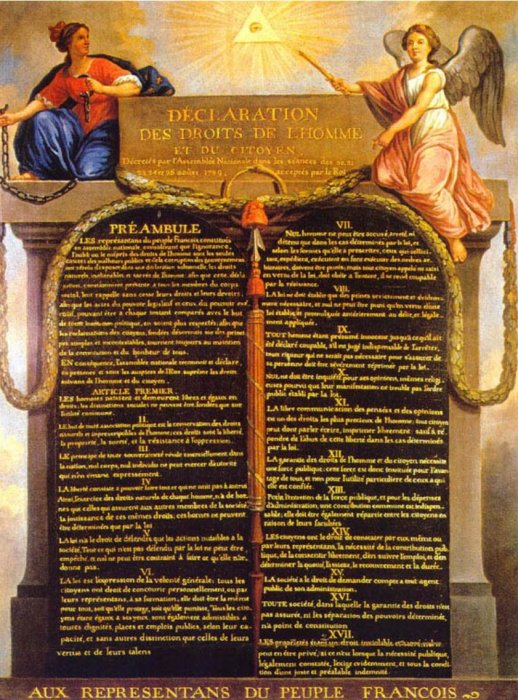 DÉCLARATION
DES DROITS DE L'HOMME
ET DU CITOYEN
Décretés par l'Assemblée Nationale dans les séances des 20, 21
23, 24 et 26 août, 1789, acceptés par le Roi
PRÉAMBULE
LES représentans du peuple Francois, constitués
en assemblée nationale, considérant que l'ignorance,
l'oubli ou le mépris des droits de l'homme sont les seules
causes des malheurs publics et de la corruption des gouvernemens
ont résolu d'exposer dans une déclaration solemnelle, les droits
naturels, inaliénables et sacrés de l'homme: afin que cette décla-
ration, constamment présente a tous les membres du corps
social, leur rappelle sans cesse leurs droits et leurs devoirs;
afin que les actes du pouvoir législatif et ceux du pouvoir exé-
cutif, pouvant être a chaque instant comparés avec le but
de toute institution politique, en soient plus respectés; afin que
les réclamations des citoyens, fondées désormais sur des princi-
pes simples et incontestables, tournent toujours au maintien
de la constitution et du bonheur de tous.
EN conséquence, l'assemblée nationale reconnoit et déclare,
en présence et sous les auspices de l'Etre suprême les droits
suivans de l'homme et du citoyen.
ARTICLE PREMIER.
LES hommes naissent et demeurent libres et égaux en
droits. les distinctions sociales ne peuvent être fondées que sur
l'utilité commune.
II.
LE but de toute association politique est la conservation des droits
naturels et imprescriptibles de l'homme; ces droits sont la liberté,
la propriété, la sureté, et la résistance à l'oppression.
III.
LE principe de toute souveraineté réside essentiellement dans
la nation, nul corps, nul individu ne peut exercer d'autorité
qui n'en émane expressement.
IV.
LA liberté consiste a pouvoir faire tout ce qui ne nuit pas à autrui
Ainsi, l'exercice des droits naturels de chaque homme, n'a de bor-
nes que celles qui assurent aux autres membres de la société
la jouissance de ces mêmes droits. ces bornes ne peuvent
être déterminées que par la loi
V.
LA loi n'a le droit de défendre que les actions nuisibles a la
société. Tout ce qui n'est pas défendu par la loi ne peut être
empêché, et nul ne peut être contraint à faire ce qu'elle n'or-
donne pas.
VI.
LA loi est l'expression de la volonté générale: tous les
citoyens ont droit de concourir personnellement, ou par
leurs représentans, à sa formation, elle doit être la même
pour tous, soit qu'elle protege, soit qu'elle punisse, Tous les cito-
yens étant égaux à ses yeux, sont également admissibles a
toutes dignités, places et emplois publics, selon leur ca-
pacité, et sans autres distinction que celles de leurs
vertus et de leurs talens
VII.
NUL homme ne peut être accusé, arreté, ni
détenu que dans les cas déterminés par la loi, et
selon les formes qu'elle a prescrites, ceux qui sollici-
tent, expédient, exécutent ou font exécuter des ordres ar-
bitraires, doivent être punis; mais tout citoyen appelé ou saisi
en vertu de la loi, doit obéir a l'instant, il se rend coupable
par la résistance.
VIII.
LA loi ne doit établir que des peines strictement et évidem-
ment nécessaires, et nul ne peut être puni qu'en vertu d'une
loi établie, et promulguée antérieurement au délit, et légale-
ment appliquée.
IX.
TOUT homme étant présumé innocent jusqu'a ce qu'il ait
été déclaré coupable, s'il est jugé indispensable de l'arrêter,
toute rigueur qui ne serait pas nécessaire pour s'assurer de
sa personne doit être sévèrement réprimée par la loi.
X.
NUL ne doit être inquiété pour ses opinions, mêmes religi-
euses pourvu que leur manifestation ne trouble pas l'ordre
public établi par la loi.
XI.
LA libre communication des pensées et des opinions
est un des droits les plus precieux de l'homme; tout citoyen
peut donc parler écrire, imprimer librement: sauf à ré-
pondre de l'abus de cette liberté dans les cas déterminés
par la loi.
XII.
LA garantie des droits de l'homme et du citoyen nécessite
une force publique; cette force est donc instituée pour l'avan-
tage de tous, et non pour l'utilité particuliere de ceux a qui
elle est confiée.
XIII.
POUR l'entretien de la force publique, et pour les dépenses
d'administration, une contribution commune est indispen-
sable; elle doit être également répartie entre les citoyens en
raison de leurs facultées
XIV.
LES citoyens ont le droit de constater par eux même ou
par leurs représentans, la nécessité de la contribution pub-
lique, de la consentir librement, d'en suivre l'emploi, et d'en
déterminer la quotité, l'assiette, le recouvrement et la durée.
XV.
LA société a le droit de demander compte a tout agent
public de son administration.
XVI.
TOUTE société, dans laquelle la garantie des droits n'est
pas assurée, ni les séparation des pouvoirs déterminée,
n'a point de constitution
XVII.
LES propriétés étant un droit inviolable et sacré, nul ne
peut en être privé, si ce n'est lorsque la nécessité publique,
légalement constatée, l'exige evidemment, et sous la condi-
tion d'une juste et préalable indemnité.
AUX REPRESENTANS DU PEUPLE FRANCOIS